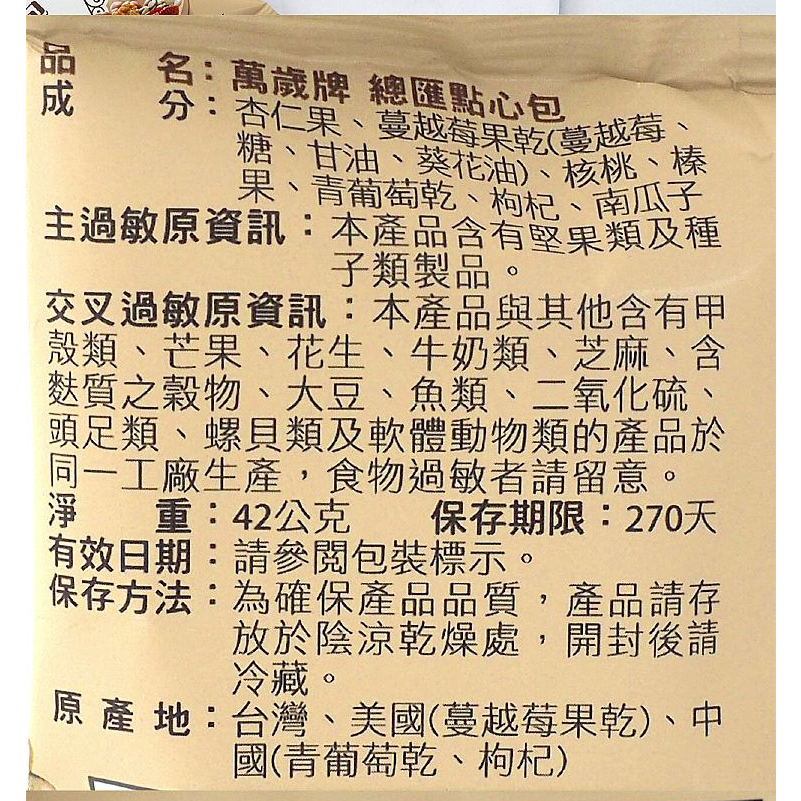 品名：萬歲牌 總匯點心包
成分：杏仁果、蔓越莓果乾(蔓越莓、
糖、甘油、葵花油)、核桃、榛
果、青葡萄乾、枸杞、南瓜子
主過敏原資訊：本產品含有堅果類及種
子類製品。
交叉過敏原資訊：本產品與其他含有甲
殼類、芒果、花生、牛奶類、芝麻、含
麩質之穀物、大豆、魚類、二氧化硫、
頭足類、螺貝類及軟體動物類的產品於
同一工廠生產，食物過敏者請留意。
淨重：42公克 保存期限：270天
有效日期：請參閱包裝標示。
保存方法：為確保產品品質，產品請存
放於陰涼乾燥處，開封後請
冷藏。
原產地：台灣、美國(蔓越莓果乾)、中
國(青葡萄乾、枸杞)